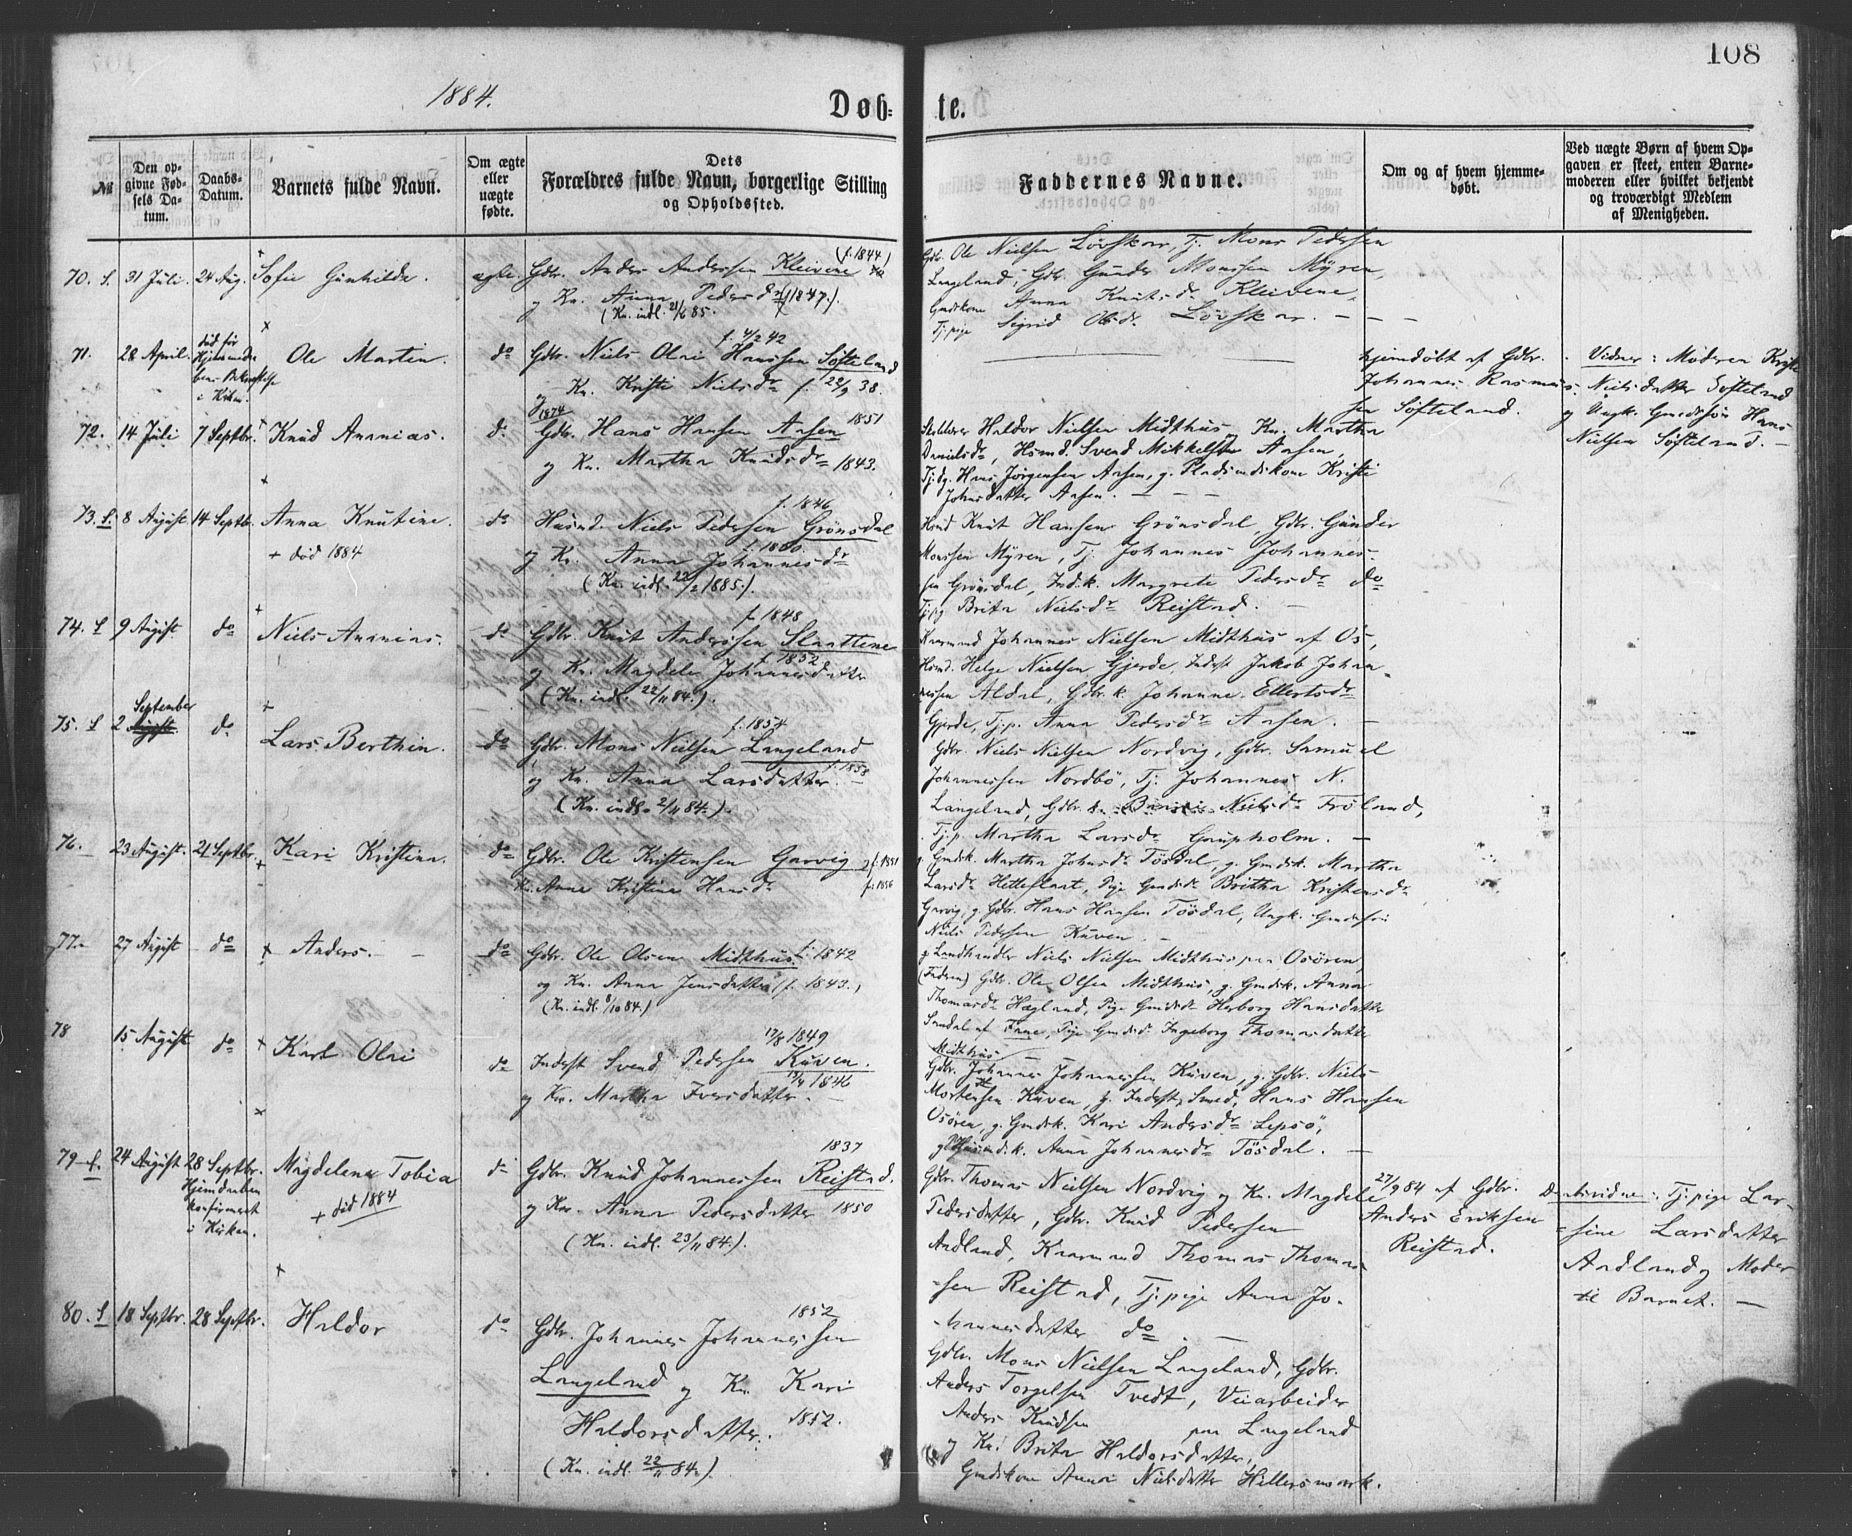 108
1884.
Døb-
te.
№
Den op-
givne Fød-
sels Da-
tum.
Daabs-
Datum.
Barnets fulde Navn.
Om ægte
eller
uægte
fødte.
Dets
Forældres fulde Navn, borgerlige Stilling
og Opholdssted.
Faddernes Navne.
Om og af hvem hjemme-
døbt.
Ved uægte Børn af hvem Op-
gaven er skeet, enten Barne-
moderen eller hvilket bekjendt
og troværdigt Medlem
af Menigheden.
70. S. 31 Juli. 24 Aug. Sofie Gunhilde. ægte
Gdbr. Anders Anderssen Kleivene (f. 1844)
og Kn. Anna Pedersdr (1847).
(Kn. indl. 21/6 85.
Gdb. Ole Nielsen Lövskar, Tj. Mons Pedersen
Langeland, Gdb. Gunder Monssen Myren,
Gmdskone Anna Knutsdr Kleivene,
Tj.pige Sigrid Olsdr Lövskar. — — —
71. 28 April.
i Kirken.
Ole Martin. do
f. 4/2 42
Gdbr. Niels Olai Hanssen Søfteland
og Kn. Kristi Nielsdr f. 22/9 38.
hjemdøbt af Gdbr.
Johannes Rasmus-
sen Søfteland.
Vidner: Moderen Kristi
Nielsdatter Søfteland
og Ungk. Gmdssøn Hans
Nielsen Søfteland. —
72. 14 Juli 7 Septbr. Knud Ananias. do
1874 1851
Gdbr. Hans Hansen Aasen
og Kn. Martha Knudsdr 1843.
Skolelærer Haldor Nielsen Midthus, Kn. Martha
Danielsdr, Hsmd. Svend Mikkelsen Aasen,
Tj.dg. Hans Jørgensen Aasen, g. Pladsmdskone Kristi
Johnsdatter Aasen. — — —
73. S. 8 August 14 Septbr. Anna Knutine. do
+ død 1884
f. 1846
Husmd. Niels Pedersen Grönsdal
f. 1860
og Kn. Anna Johannesdr
(Kn. indl. 22/2 1885.).
Hsmd Knut Hansen Grönsdal, Gdbr. Gunder
Monssen Myren, Tj. Johannes Johannes-
sen Grönsdal, Ind.k. Margrete Pedersdr do
Tj.pg Brita Nielsdr Reistad. —
74. S 9 August do Niels Ananias. do
f. 1848
Gdbr. Knut Anderssen Slaattene
f. 1852
og Kn. Magdele Johannesdatter
(Kn. indl. 22/11 84.).
Kaarmand Johannes Nielsen Midthus af Os,
Hsmd. Helge Nielsen Gjerde, Indst Jakob Johan-
nessen Aldal, Gdbr.k. Johanne Ellertsdr
Gjerde, Tj.p. Anna Pedersdr Aasen. —
75. S 2 September August do Lars Berthin. do
f. 1854
Gdbr. Mons Nielsen Langeland
f. 1858
og Kn. Anna Larsdatter. —
(Kn. indl. 2/11 84.).
Gdbr. Niels Nielsen Nordvig, Gdbr. Samuel
Johannessen Nordbö, Tj. Johannes N.
Langeland, Gdbr. kn. Nielsdr Fröland,
Tj.p. Martha Larsdr Gaupholm. —
76. 23 August. 21 Septbr. Kari Kristina. do
Gdbr. Ole Kristensen Garvig og f. 1851
Kn. Anne Kristine Hansdr f. 1856
g. Gmdsk. Martha Johnsdr Tösdal, g. Gmdsk. Martha
Larsdr Hetleflaat, Pige Gmdsdr Britha Kristensdr
Garvig, g. Gdbr. Hans Hansen Tösdal, Ungk. Gmdssön
Niels Pedersen Kuven. —
77. 27 August do Anders. do
Gdbr. Ole Olsen Midthus f. 1842
og Kn. Anna Jensdatter (f. 1843.)
(Kn. indl. 8/10 84.)
g. Landhandler Niels Nielsen Midthus paa Osören,
(Faderen) Gdbr. Ole Olsen Midthus, g. Gmdsk. Anna
Thomasdr Hægland, Pige Gmdsdr Herborg Hansdatter
Sandal af Fane, Pige Gmdsdr Ingeborg Thomasdatter
Midthus —
78 15 August do Karl Olai do
17/8 1849
Indest Svend Pedersen Kuven.
13/4 1846
og Kn. Martha Iversdatter. —
Gdbr. Johannes Johannessen Kuven, g. Gdbr. Niels
Mortensen Kuven, g. Indest, Smed, Hans Hansen
Osören, g. Gmdsk. Kari Andersdr Lepsö,
g. Husmdsk. Anna Johannesdr Tösdal. —
79 S. 24 August 28 Septbr. Magdelena Tobia do
Hjemdaaben
konfirmeret
i Kirken.
+ død 1884
1837
Gdbr. Knud Johannessen Reistad.
og Kn. Anna Pedersdatter 1850
(Kn. indl. 23/11 84.).
Gdbr. Thomas Nielsen Nordvig og Kn. Magdele
Pedersdatter, Gdbr. Knud Pedersen
Aadland, Kaarmand Thomas Thomas-
sen Reistad, Tj.pige Anna Jo-
hannesdatter do. —
27/9 84 af Gdbr.
Anders Eriksen
Reistad.
Daabsvidne: Tj.pige Lar-
sine Larsdatter
Aadland og Moder
til Barnet. —
80. S 18 Septbr. 28 Septbr. Haldor do
1852
Gdbr. Johannes Johannessen
Langeland og Kn. Kari
Haldorsdatter. 1852.
(Kn. indl. 22/11 84.).
Gdbr. Mons Nielsen Langeland, Gdbr.
Anders Torgelsen Tvedt, Veiarbeider
Anders Knudsen paa Langeland
og Kn. Brita Haldorsdatter,
Gmdskone Anna Nielsdatter Hellersmark.